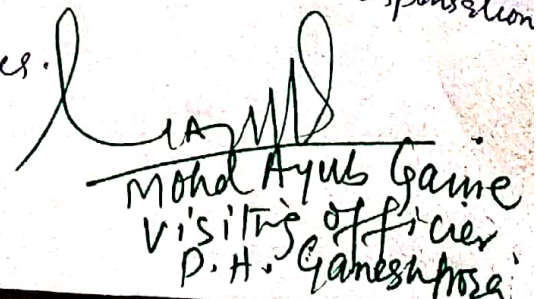 es.
Mohd Ayub Ganie
Visiting officier
P.H. Ganeshpora